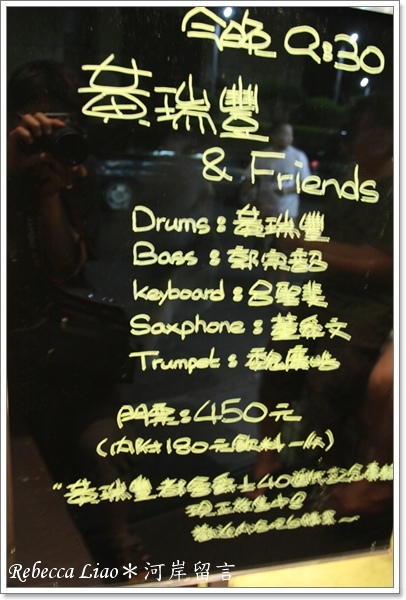 今晚 9:30
黃瑞豐
& Friends
Drums：黃瑞豐
Bass：鄭宗韶
Keyboard：呂聖斐
Saxphone：董舜文
Trumpet：魏廣晧
門票：450元
(內附180元飲料一份)
"黃瑞豐
Rebecca Liao＊河岸留言